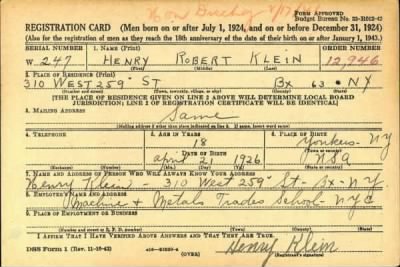 Form Approved
Budget Bureau No. 33-R012-42
REGISTRATION CARD (Men born on or after July 1, 1924, and on or before December 31, 1924)
(Also for the registration of men as they reach the 18th anniversary of the date of their birth on or after January 1, 1943.)
SERIAL NUMBER 1. NAME (Print) ORDER NUMBER
W 247 HENRY ROBERT KLEIN 12,946
(First) (Middle) (Last)
2. PLACE OF RESIDENCE (Print)
310 WEST 259" ST Bx 63 NY
(Number and street) (Town, township, village, or city) (County) (State)
[THE PLACE OF RESIDENCE GIVEN ON LINE 2 ABOVE WILL DETERMINE LOCAL BOARD
JURISDICTION; LINE 2 OF REGISTRATION CERTIFICATE WILL BE IDENTICAL]
3. MAILING ADDRESS
Same
[Mailing address if other than place indicated on line 2. If same, insert word same]
4. TELEPHONE 5. AGE IN YEARS 6. PLACE OF BIRTH
18 Yonkers-NY
DATE OF BIRTH
april 21 1926
7. NAME AND ADDRESS OF PERSON WHO WILL ALWAYS KNOW YOUR ADDRESS
Henry Klein - 310 West 259" St - Bx - NY
8. EMPLOYER'S NAME AND ADDRESS
Machine & Metals Trades School - NYC
9. PLACE OF EMPLOYMENT OR BUSINESS
I AFFIRM THAT I HAVE VERIFIED ABOVE ANSWERS AND THAT THEY ARE TRUE.
DSS Form 1 Henry Klein
(Registrant's signature)